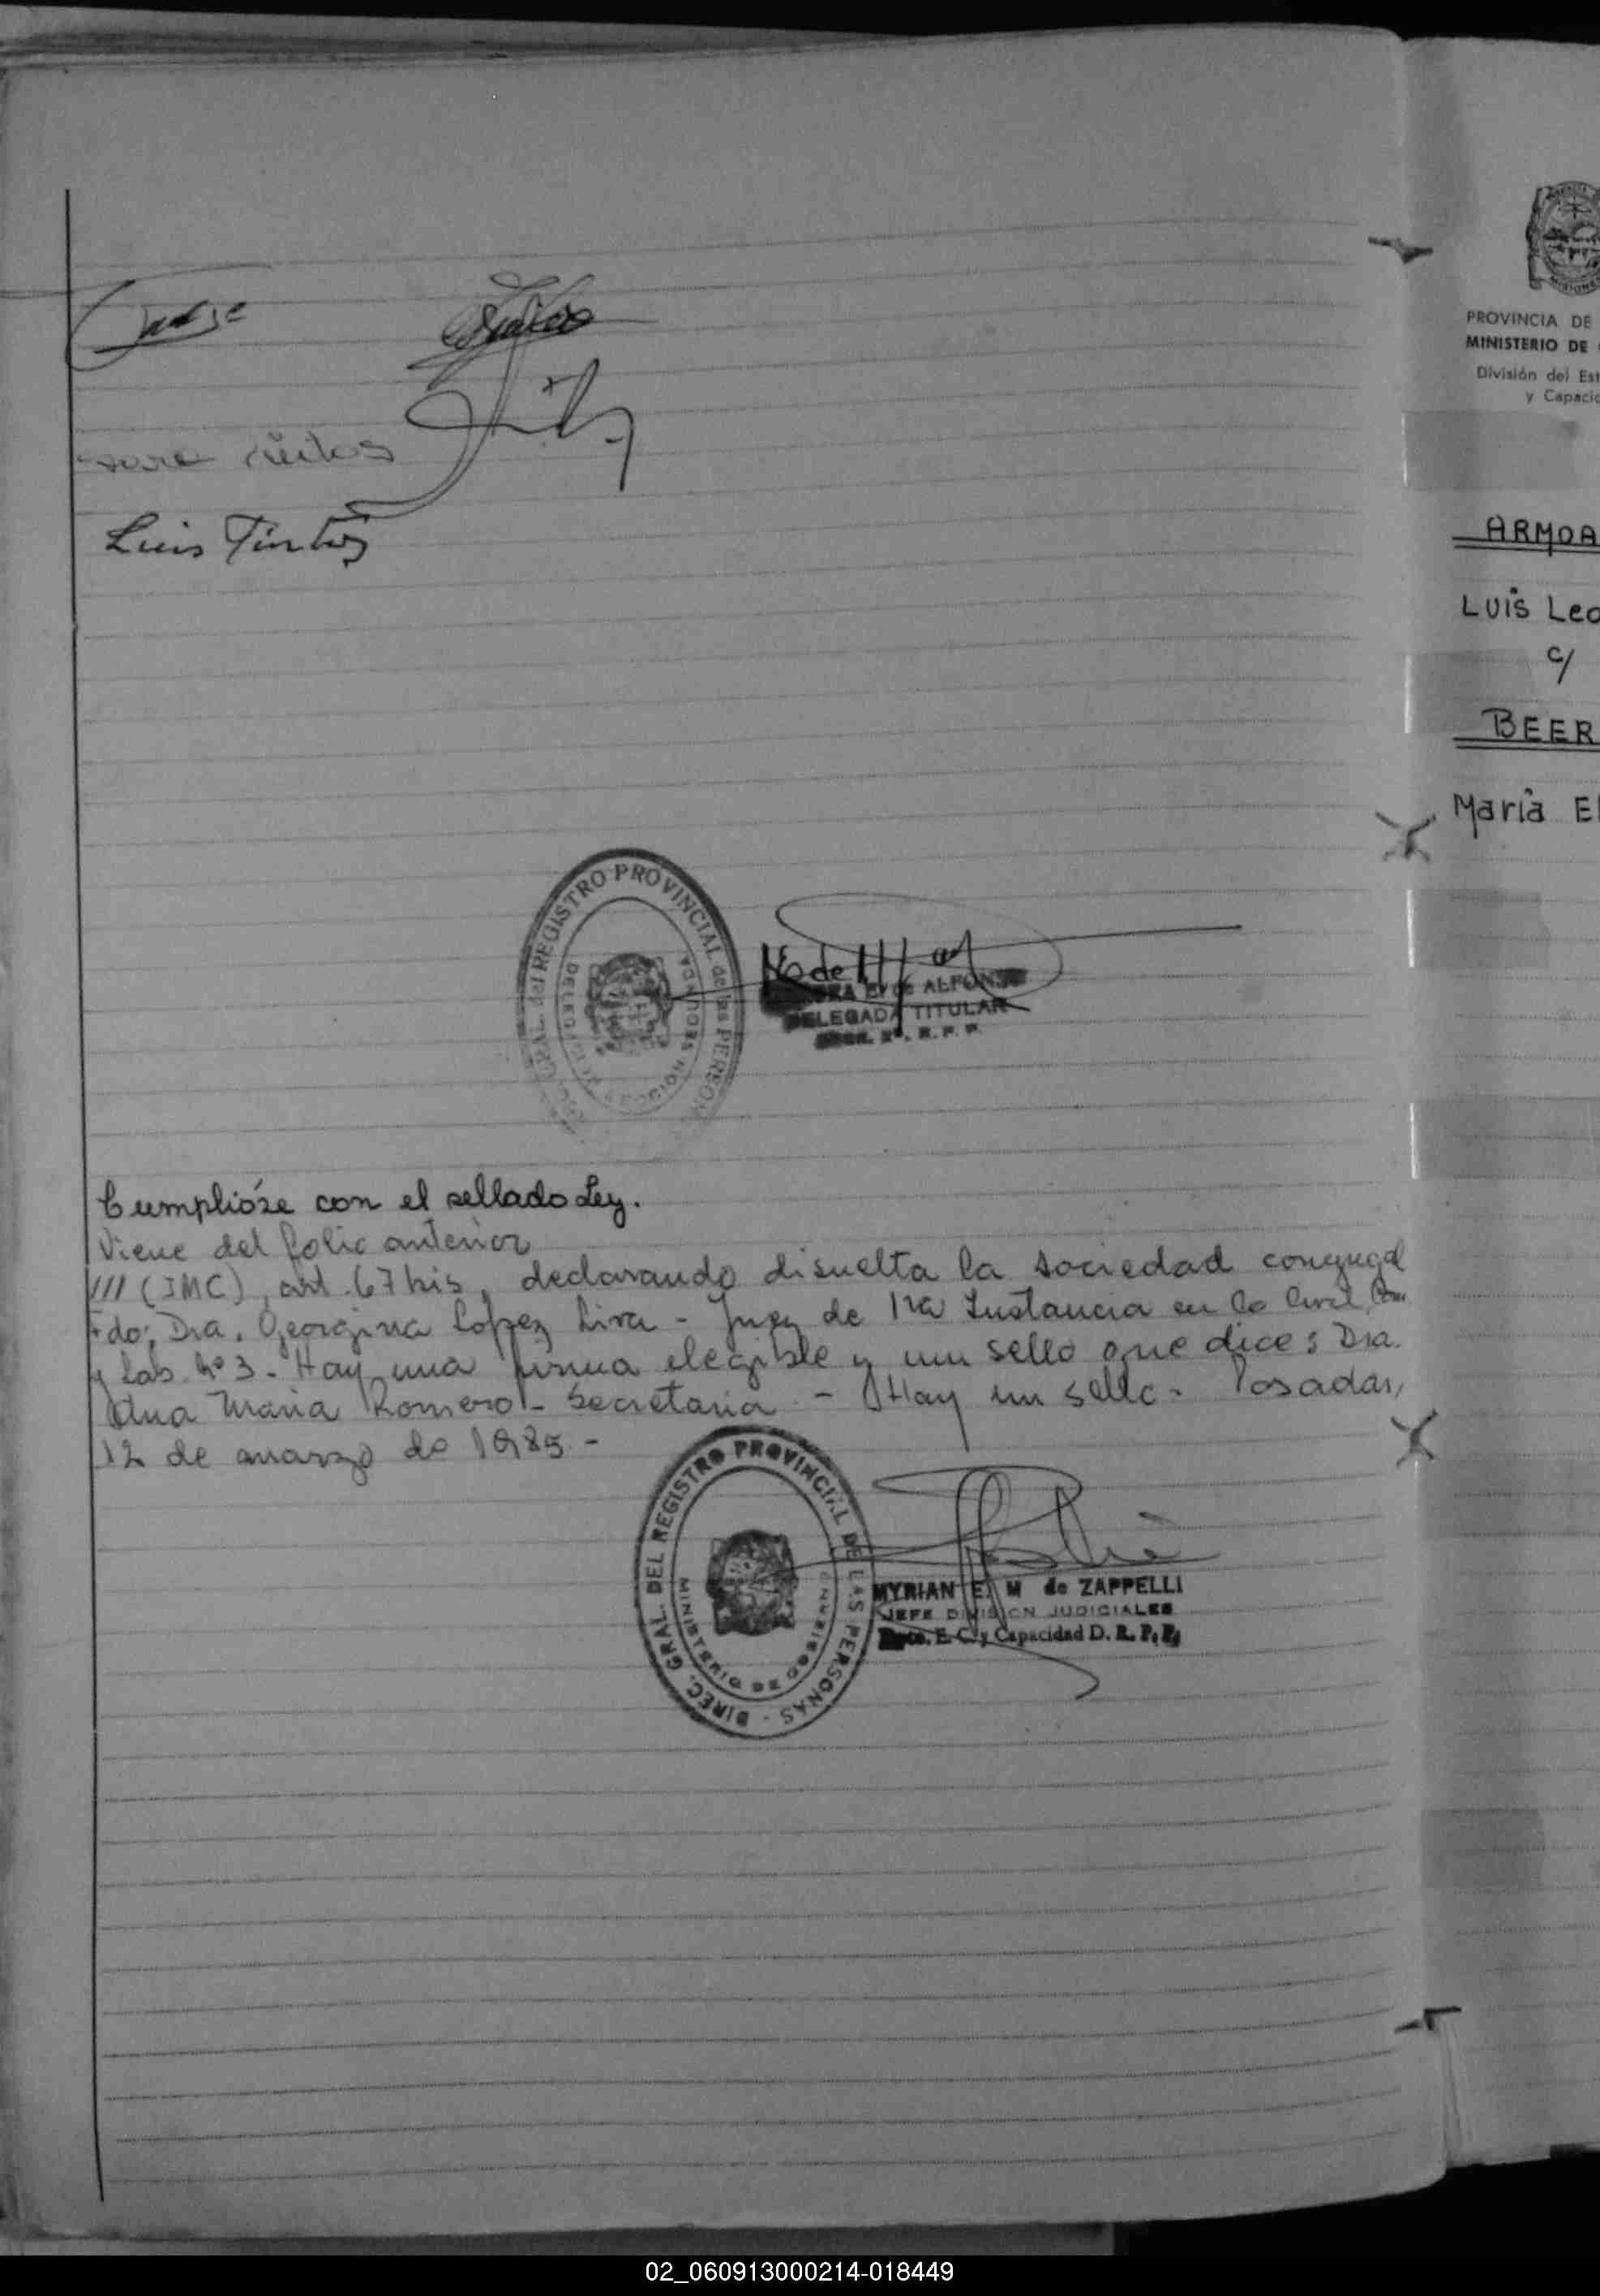 Luis
REGISTRO PROVINCIAL de las PERSON
ALFONSO
DELEGADA TITULAR
Cumplióse con el sellado Ley.
Viene del folio anterior
/// (JMC), art. 67 bis, declarando disuelta la sociedad conyugal
Fdo: Dra. Georgina López Lira - Juez de 1ra Instancia en lo Civil, Com
y Lab. Nº 3 - Hay una firma elegible y un sello que dice: Dra.
Ana Maria Romero - Secretaria - Hay un sello - Posadas,
12 de marzo de 1985 -
DIREC. GRAL. DEL REGISTRO PROVINCIAL DE LAS PERSONAS -
MINISTERIO DE GOBIERNO
MYRIAN E. M de ZAPPELLI
JEFE DIVISION JUDICIALES
Dpto. E. C. y Capacidad D. R. P. P.
MISIONES
PROVINCIA DE
MINISTERIO DE
División del Est
y Capacid
ARMOA
Luis Leo
c/
BEER
María El
02_060913000214-018449